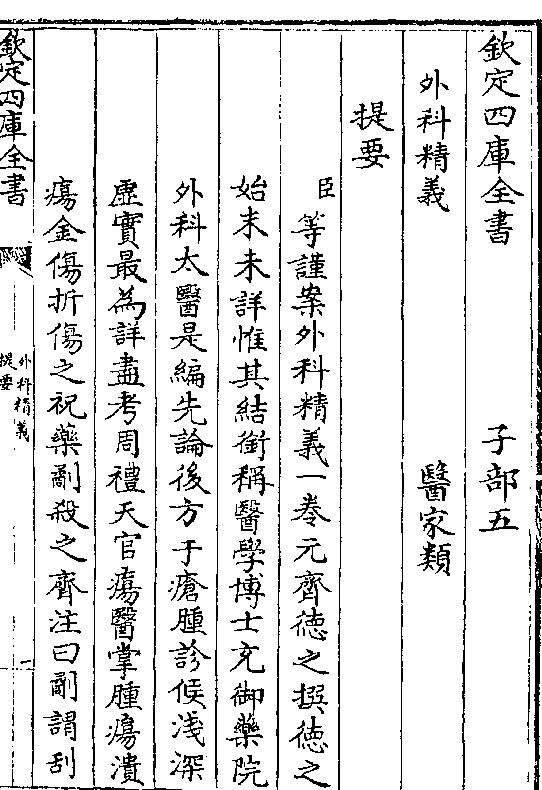 欽定四庫全書 子部五
外科精義 醫家類
提要
臣等謹案外科精義一卷元齊徳之撰徳之
始末未詳惟其結銜稱醫學博士充御藥院
外科太醫是編先論後方于瘡腫診候淺深
虛實最為詳盡考周禮天官瘍醫掌腫瘍潰
瘍金傷折傷之祝藥劀殺之齊注曰劀謂刮
欽定四庫全書
外科精義
提要
一